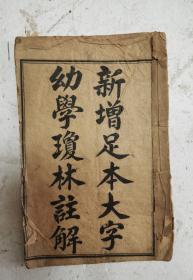 新增足本大字
幼學瓊林註解